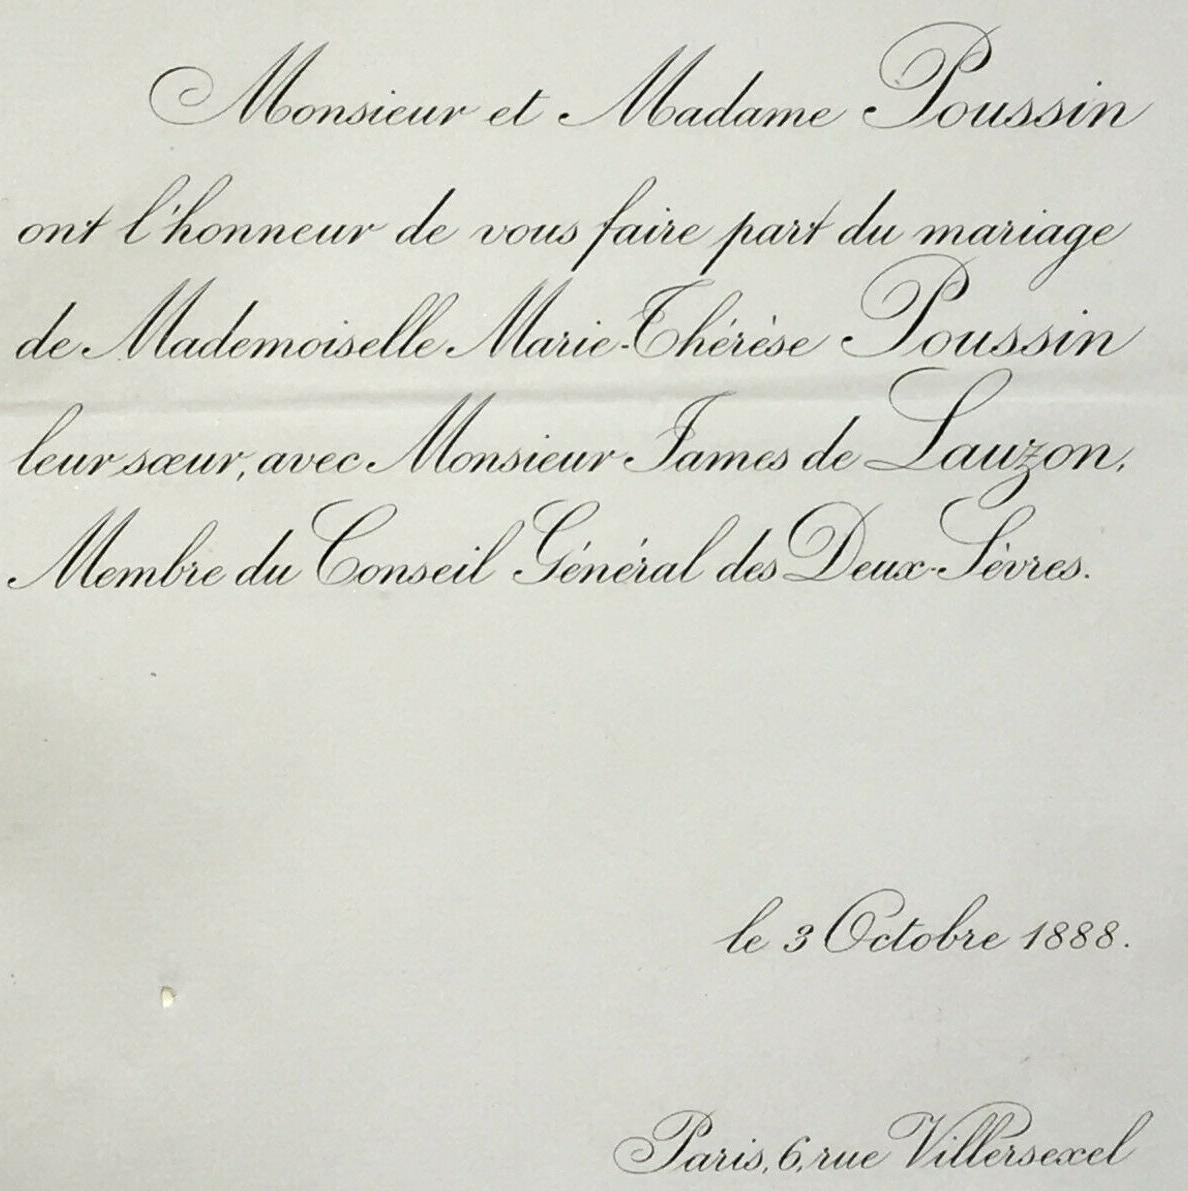 Monsieur et Madame Poussin
ont l'honneur de vous faire part du mariage
de Mademoiselle Marie-Thérèse Poussin
leur sœur, avec Monsieur James de Lauzon,
Membre du Conseil Général des Deux-Sèvres.
le 3 Octobre 1888.
Paris, 6, rue Villersexel